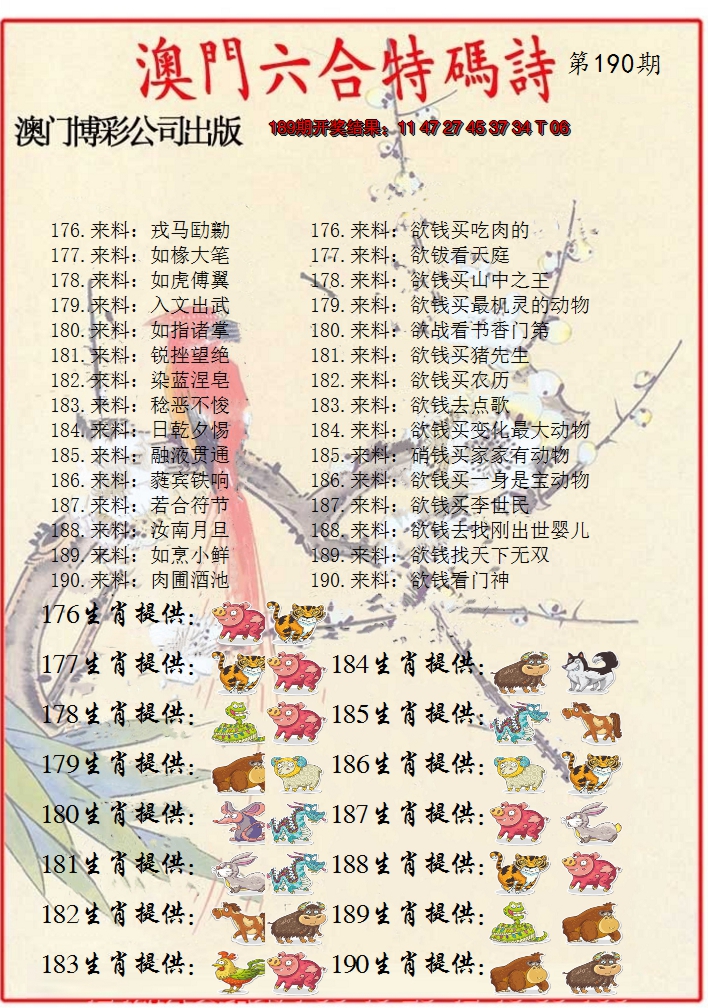 澳門六合特碼詩 第190期
澳门博彩公司出版 189期开奖结果：11 47 27 45 37 34 T 06
176.来料：戎马劻勷 176.来料：欲钱买吃肉的
177.来料：如椽大笔 177.来料：欲钹看天庭
178.来料：如虎傅翼 178.来料：欲钱买山中之王
179.来料：入文出武 179.来料：欲钱买最机灵的动物
180.来料：如指诸掌 180.来料：欲战看书香门第
181.来料：锐挫望绝 181.来料：欲钱买猪先生
182.来料：染蓝涅皂 182.来料：欲钱买农历
183.来料：稔恶不悛 183.来料：欲钱去点歌
184.来料：日乾夕惕 184.来料：欲钱买变化最大动物
185.来料：融液贯通 185.来料：硝钱买家家有动物
186.来料：蕤宾铁响 186.来料：欲钱买一身是宝动物
187.来料：若合符节 187.来料：欲钱买李世民
188.来料：汝南月旦 188.来料：欲钱去找刚出世婴儿
189.来料：如烹小鲜 189.来料：欲钱找天下无双
190.来料：肉圃酒池 190.来料：欲钱看门神
176生肖提供：
177生肖提供： 184生肖提供：
178生肖提供： 185生肖提供：
179生肖提供： 186生肖提供：
180生肖提供： 187生肖提供：
181生肖提供： 188生肖提供：
182生肖提供： 189生肖提供：
183生肖提供： 190生肖提供：